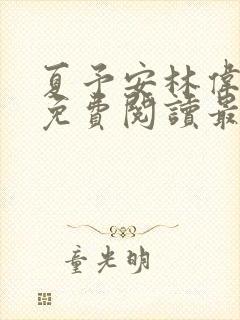 夏予安林偉
免費閱讀最
童光明